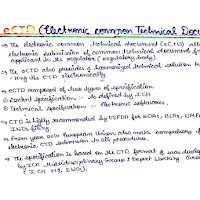 eCTD (Electronic common Technical Docu
→ The electronic common technical document (eCTD) all
electronic submission of common technical document fr
applicant to the regulator (regulatory body)
→ The eCTD also provides a harmonized technical solution to
the CTD electronically
→ eCTD composed of two types of specification
① Content specification :- As defined by ICH
② Technical specification :- Electronic softwares.
→ CTD is highly recommended by USFDA for NDAs, BLAs, DMFs
INDs filling
→ From year 2010 European Union also make compulsory
electronic CTD submission to all procedures.
→ The specification is based on the CTD format & was develop
by ICH, Multidisciplinary Group 2 Expert Working
(ICH M2, EWG).